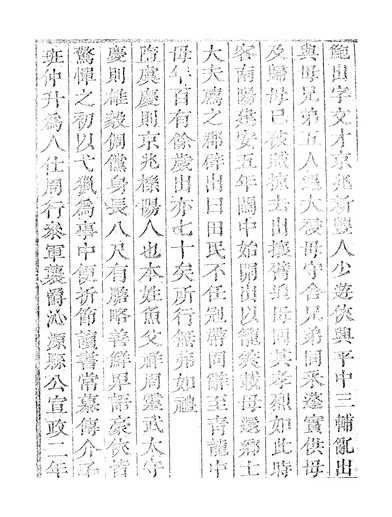 鮑出字文才京兆新豐人少遊俠與平中三輔亂出
與母兄弟五人遇大飢母守舍兄弟同采蓬實供母
及歸母已被賊掠去出攘臂追母問其孝烈如此時
客南陽建安五年關中始開出以籠炎載母還鄉士
大夫薦之郡辟出曰田民不任冠帶閒居至青龍中
母年百有餘歲出亦七十矣所行喪弗如禮
隋虞慶則京兆櫟陽人也本姓魚父祥周靈武太守
慶則雄毅倜儻身長八尺有膽略善鮮卑語豪俠皆
驚憚之初以弋獵為事中便折節讀書常慕傅介子
班仲升為人仕周行參軍襲爵沁源縣公宣政二年